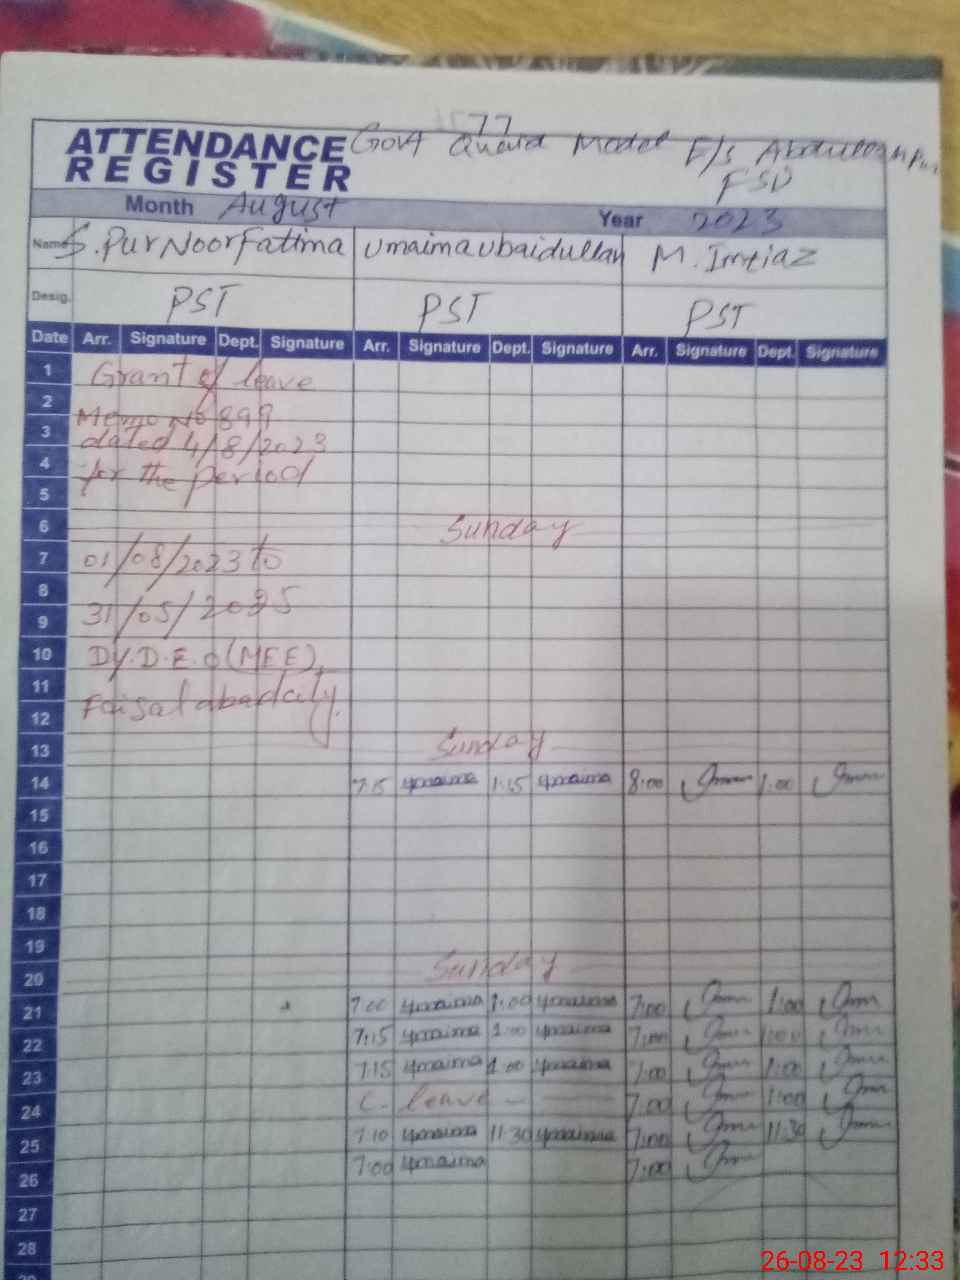 77
ATTENDANCE Govt Quaid Model E/s
REGISTER FSD
Month August Year 2023
Name S. Pur Noor Fatima Umaima Ubaidullah M. Imtiaz
Desig. PST PST PST
Date Arr. Signature Dept. Signature Arr. Signature Dept. Signature Arr. Signature Dept. Signature
1 Grant of leave
2 Memo No 899
3 dated 4/8/2023
4 for the period
5
6 Sunday
7 01/08/2023 to
8
9 31/05/2025
10 Dy. D.E.O (MEE),
11
12 Faisalabad city.
13 Sunday
14 7:15 Umaima 1:15 Umaima 8:00 1:00
15
16
17
18
19
20 Sunday
21 7:00 Umaima 1:00 Umaima 7:00 1:00
22 7:15 Umaima 1:00 Umaima 7:00 1:00
23 7:15 Umaima 1:00 Umaima 7:00 1:00
24 C. leave - - 7:00 1:00
25 7:10 Umaima 11:30 Umaima 7:00 11:30
26 7:00 Umaima 7:00
27
28
26-08-23 12:33